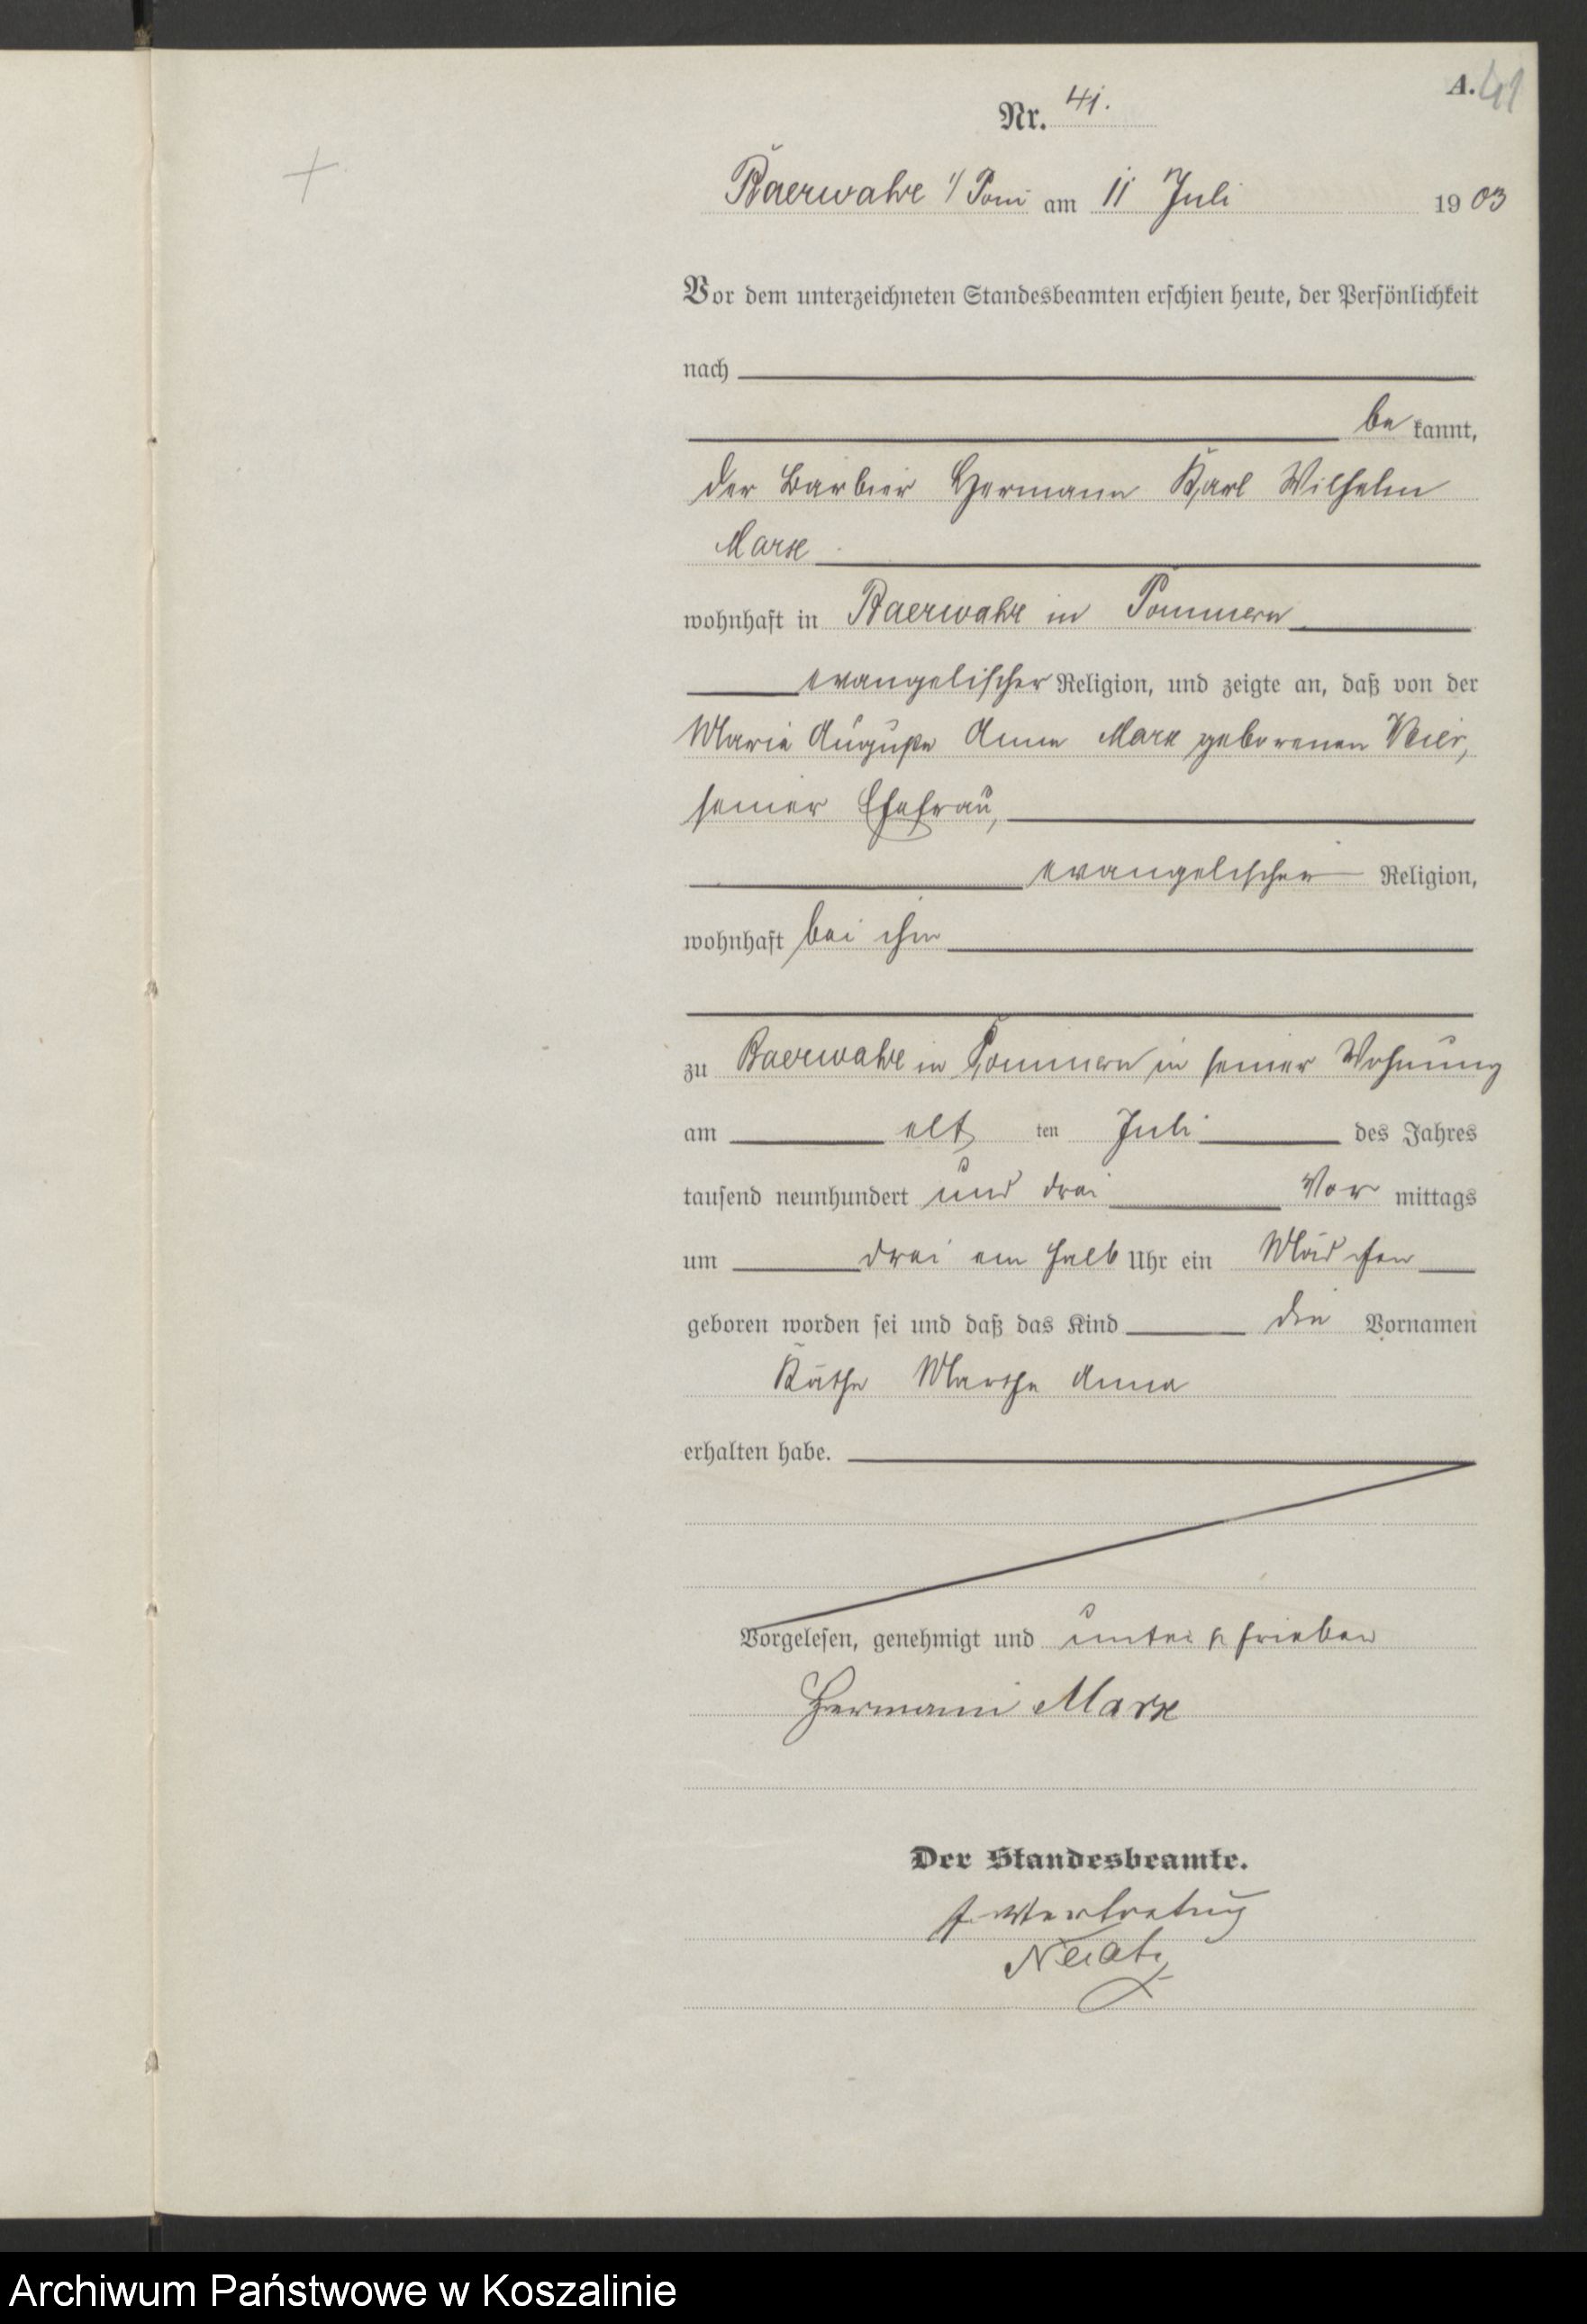 A. 41
Nr. 41.
Baerwalde i/ Pom am 11 Juli 1903
Vor dem unterzeichneten Standesbeamten erschien heute, der Persönlichkeit
nach
be kannt,
der Barbier Hermann Karl Wilhelm
Marx
wohnhaft in Baerwalde in Pommern
evangelischer Religion, und zeigte an, daß von der
Marie Auguste Anna Marx geborenen
seiner Ehefrau,
evangelischer Religion,
wohnhaft bei ihm
zu Baerwalde in Pommern in seiner Wohnung
am elf ten Juli des Jahres
tausend neunhundert und drei Vor mittags
um drei ein halb Uhr ein Mädchen
geboren worden sei und daß das Kind die Vornamen
Käthe Marthe Anna
erhalten habe.
Vorgelesen, genehmigt und unterschrieben
Hermann Marx
Der Standesbeamte.
In Vertretung
Archiwum Państwowe w Koszalinie